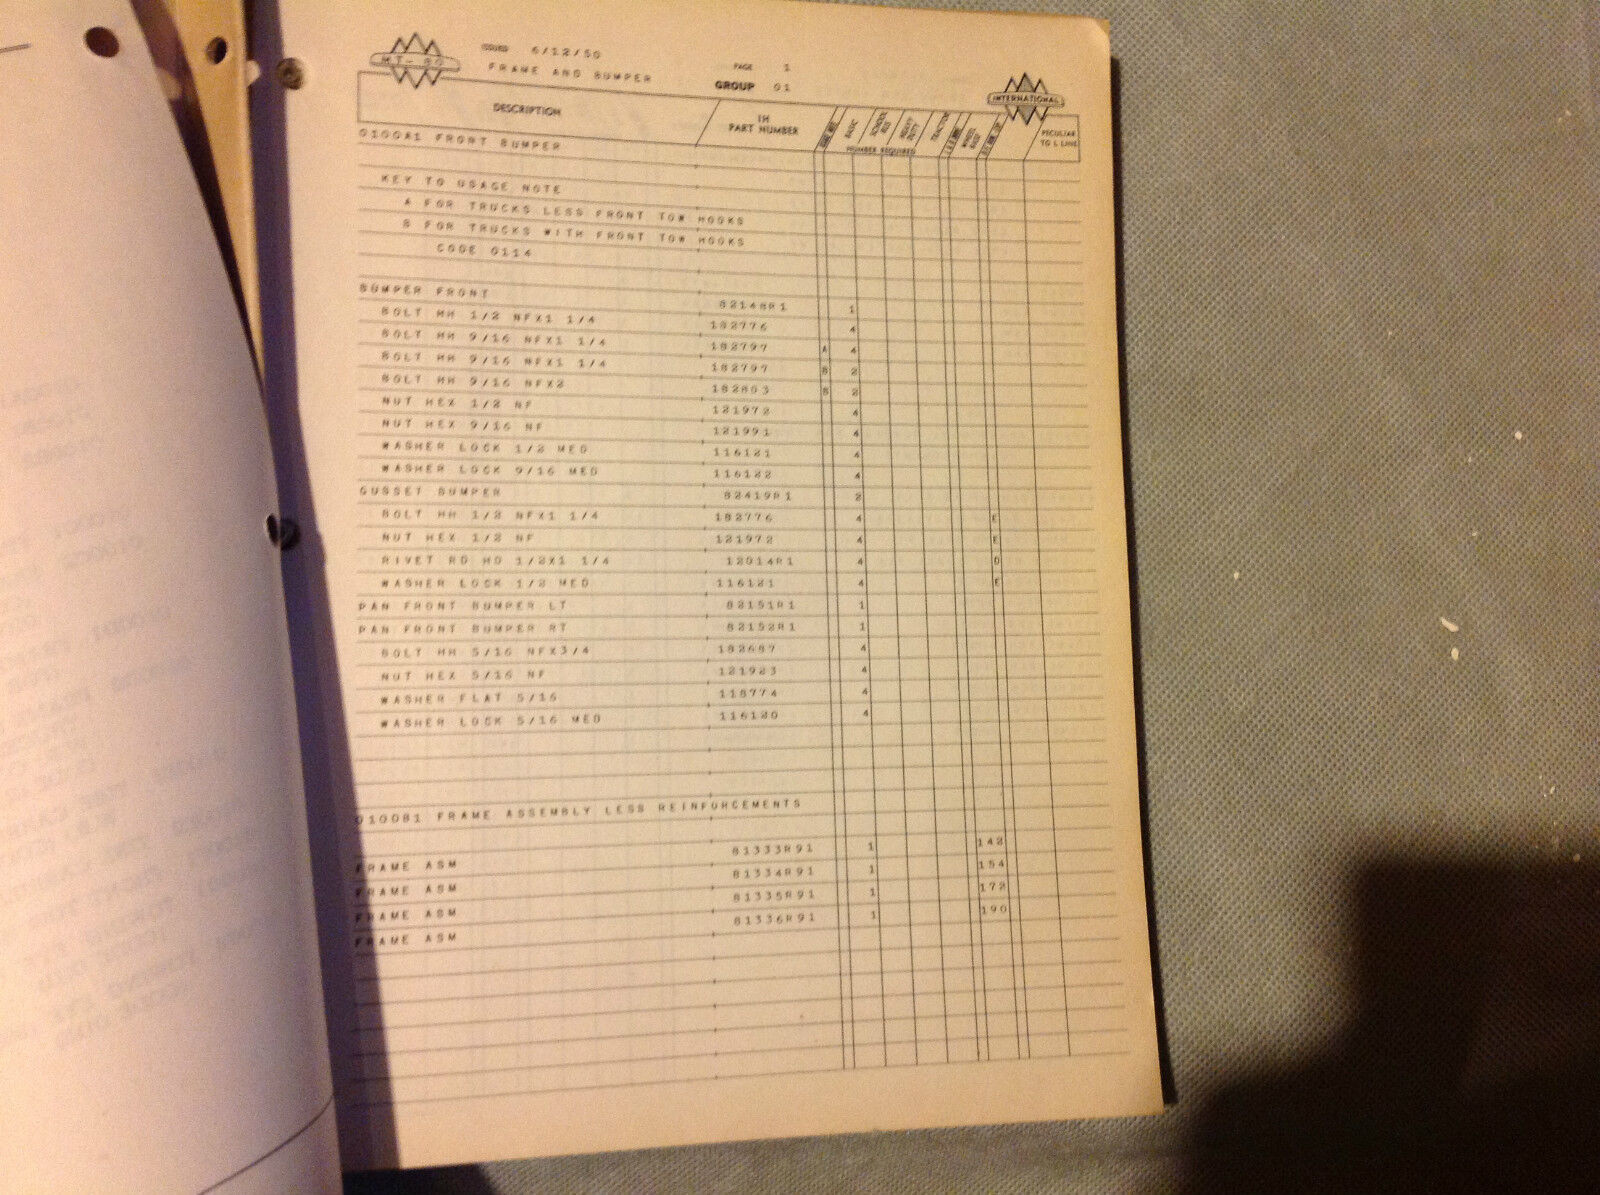 MT-80
ISSUED 6/12/50
FRAME AND BUMPER
PAGE 1
GROUP 01
INTERNATIONAL
DESCRIPTION IH PART NUMBER BASIC SCHOOL BUS HEAVY DUTY TRACTOR WHEEL BASE PECULIAR TO L LINE
NUMBER REQUIRED
0100A1 FRONT BUMPER
KEY TO USAGE NOTE
A FOR TRUCKS LESS FRONT TOW HOOKS
B FOR TRUCKS WITH FRONT TOW HOOKS
CODE 0114
BUMPER FRONT 82148R1 1
BOLT HH 1/2 NFX1 1/4 182776 4
BOLT HH 9/16 NFX1 1/4 182797 A 4
BOLT HH 9/16 NFX1 1/4 182797 B 2
BOLT HH 9/16 NFX2 182803 B 2
NUT HEX 1/2 NF 121972 4
NUT HEX 9/16 NF 121991 4
WASHER LOCK 1/2 MED 116121 4
WASHER LOCK 9/16 MED 116122 4
GUSSET BUMPER 82419R1 2
BOLT HH 1/2 NFX1 1/4 182776 4 E
NUT HEX 1/2 NF 121972 4 E
RIVET RD HD 1/2X1 1/4 12014R1 4 D
WASHER LOCK 1/2 MED 116121 4 E
PAN FRONT BUMPER LT 82151R1 1
PAN FRONT BUMPER RT 82152R1 1
BOLT HH 5/16 NFX3/4 182687 4
NUT HEX 5/16 NF 121923 4
WASHER FLAT 5/16 118774 4
WASHER LOCK 5/16 MED 116120 4
0100B1 FRAME ASSEMBLY LESS REINFORCEMENTS
FRAME ASM 81333R91 1 142
FRAME ASM 81334R91 1 154
FRAME ASM 81335R91 1 172
FRAME ASM 81336R91 1 190